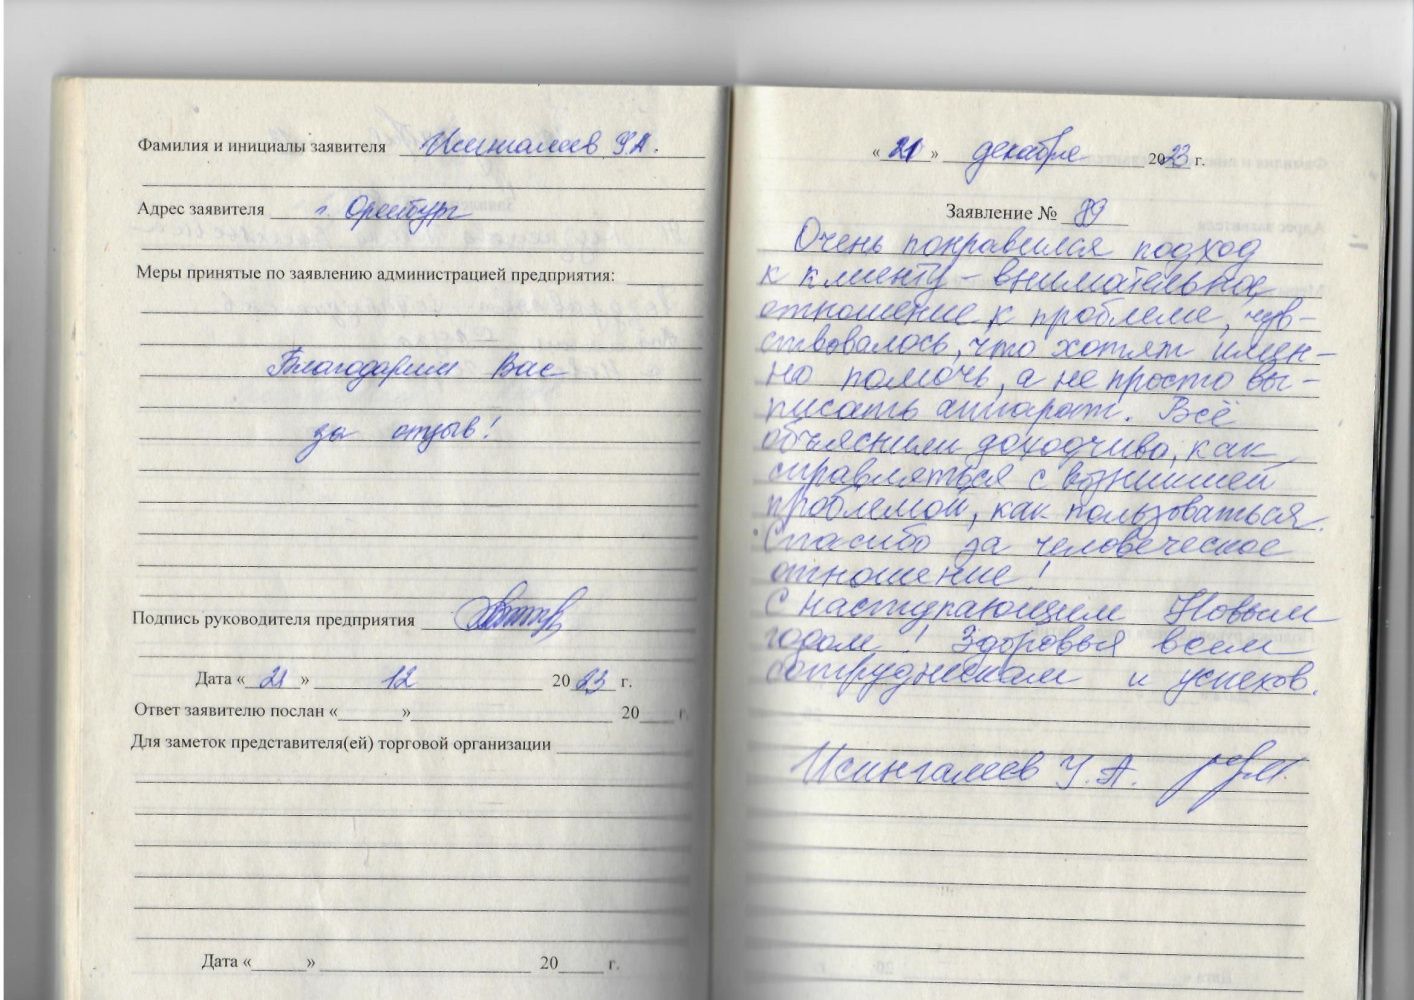 Фамилия и инициалы заявителя Исингалеев У.А.
Адрес заявителя г. Оренбург
Меры принятые по заявлению администрацией предприятия:
Благодарим Вас
за отзыв!
Подпись руководителя предприятия
Дата «21» 12 2023 г.
Ответ заявителю послан «» 20 г.
Для заметок представителя(ей) торговой организации
Дата «» 20 г.
«21» декабря 2023 г.
Заявление № 89
Очень понравился подход
к клиенту – внимательное
отношение к проблеме, чув-
ствовалось, что хотят имен-
но помочь, а не просто вы-
писать аппарат. Всё
объяснили доходчиво, как
справляться с возникшей
проблемой, как пользоваться.
Спасибо за человеческое
отношение!
С наступающим Новым
годом! Здоровья всем
сотрудникам и успехов.
Исингалеев У.А.